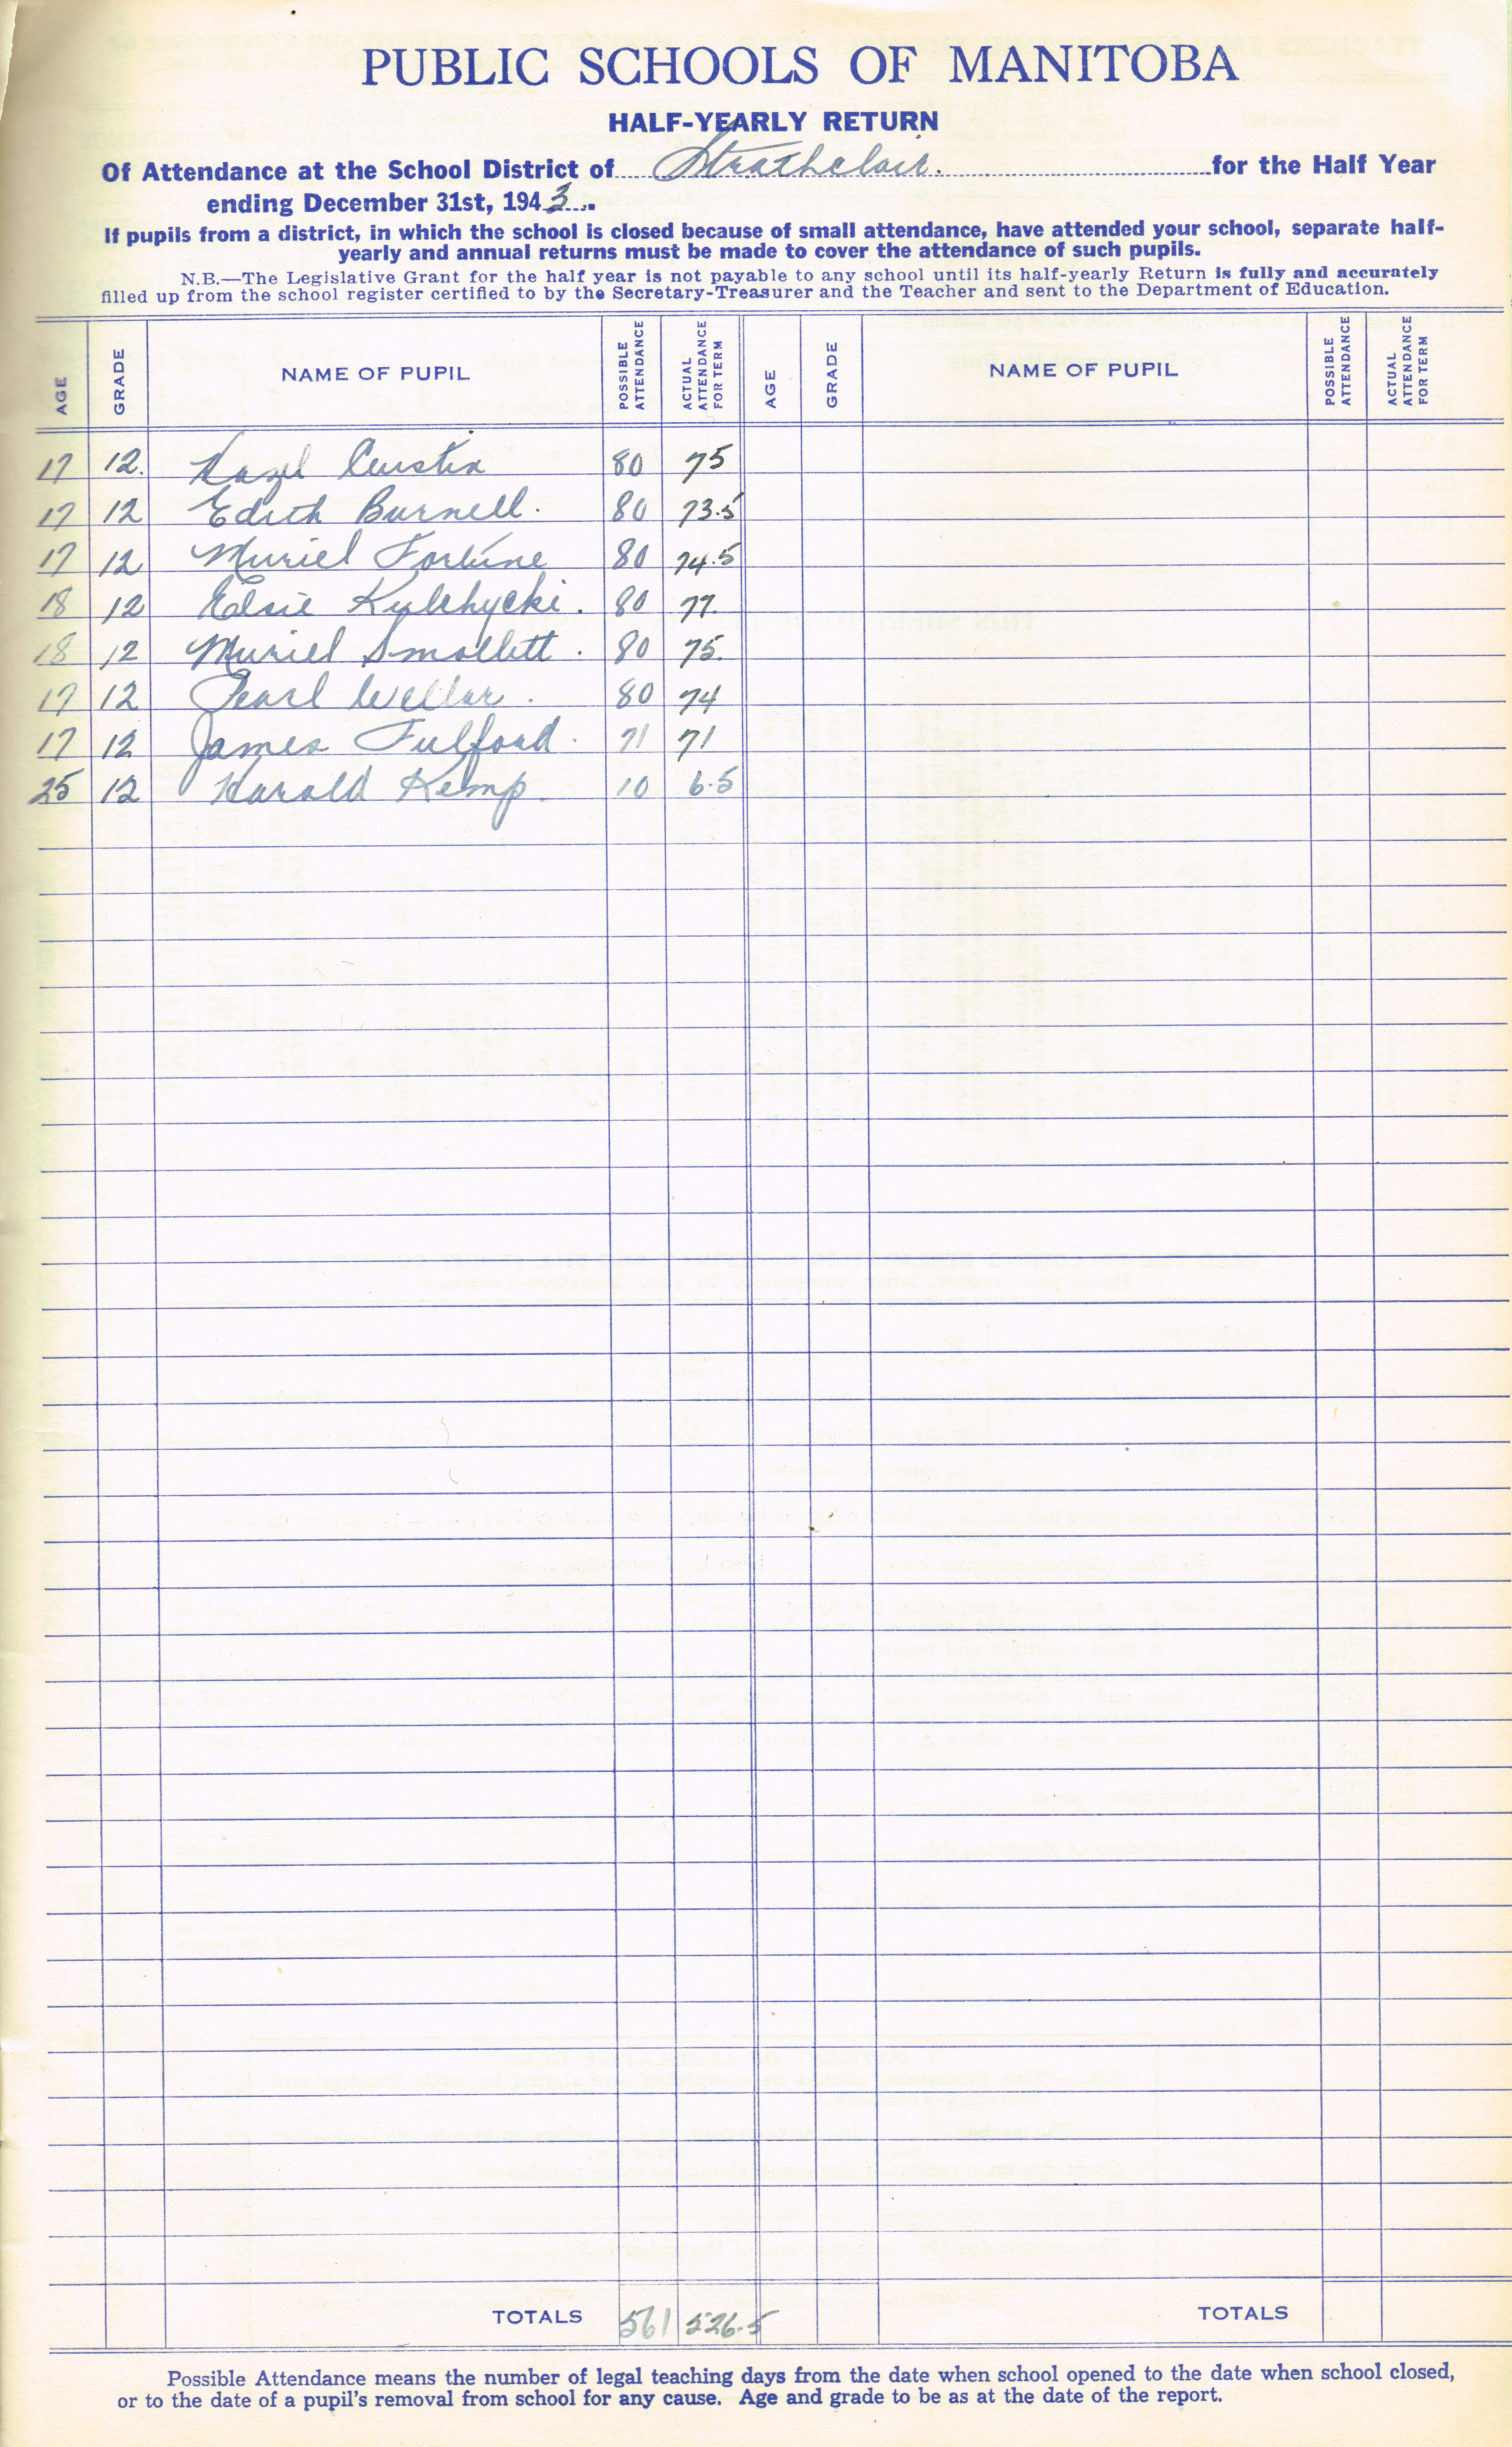 PUBLIC SCHOOLS OF MANITOBA
HALF-YEARLY RETURN
Of Attendance at the School District of Strathclair. for the Half Year
ending December 31st, 1943.
If pupils from a district, in which the school is closed because of small attendance, have attended your school, separate half-
yearly and annual returns must be made to cover the attendance of such pupils.
N.B.—The Legislative Grant for the half year is not payable to any school until its half-yearly Return is fully and accurately
filled up from the school register certified to by the Secretary-Treasurer and the Teacher and sent to the Department of Education.
AGE GRADE NAME OF PUPIL POSSIBLE ATTENDANCE ACTUAL ATTENDANCE FOR TERM AGE GRADE NAME OF PUPIL POSSIBLE ATTENDANCE ACTUAL ATTENDANCE FOR TERM
17 12. Hazel Austin 80 75
17 12 Edith Burnell. 80 73.5
17 12 Muriel Fortune 80 74.5
18 12 Elsie Kulchycki. 80 77.
18 12 Muriel Smollett. 80 75.
17 12 Pearl Wellar. 80 74
17 12 James Fulford. 71 71
25 12 Harold Kemp. 10 6.5
TOTALS 561 526.5 TOTALS
Possible Attendance means the number of legal teaching days from the date when school opened to the date when school closed,
or to the date of a pupil's removal from school for any cause. Age and grade to be as at the date of the report.